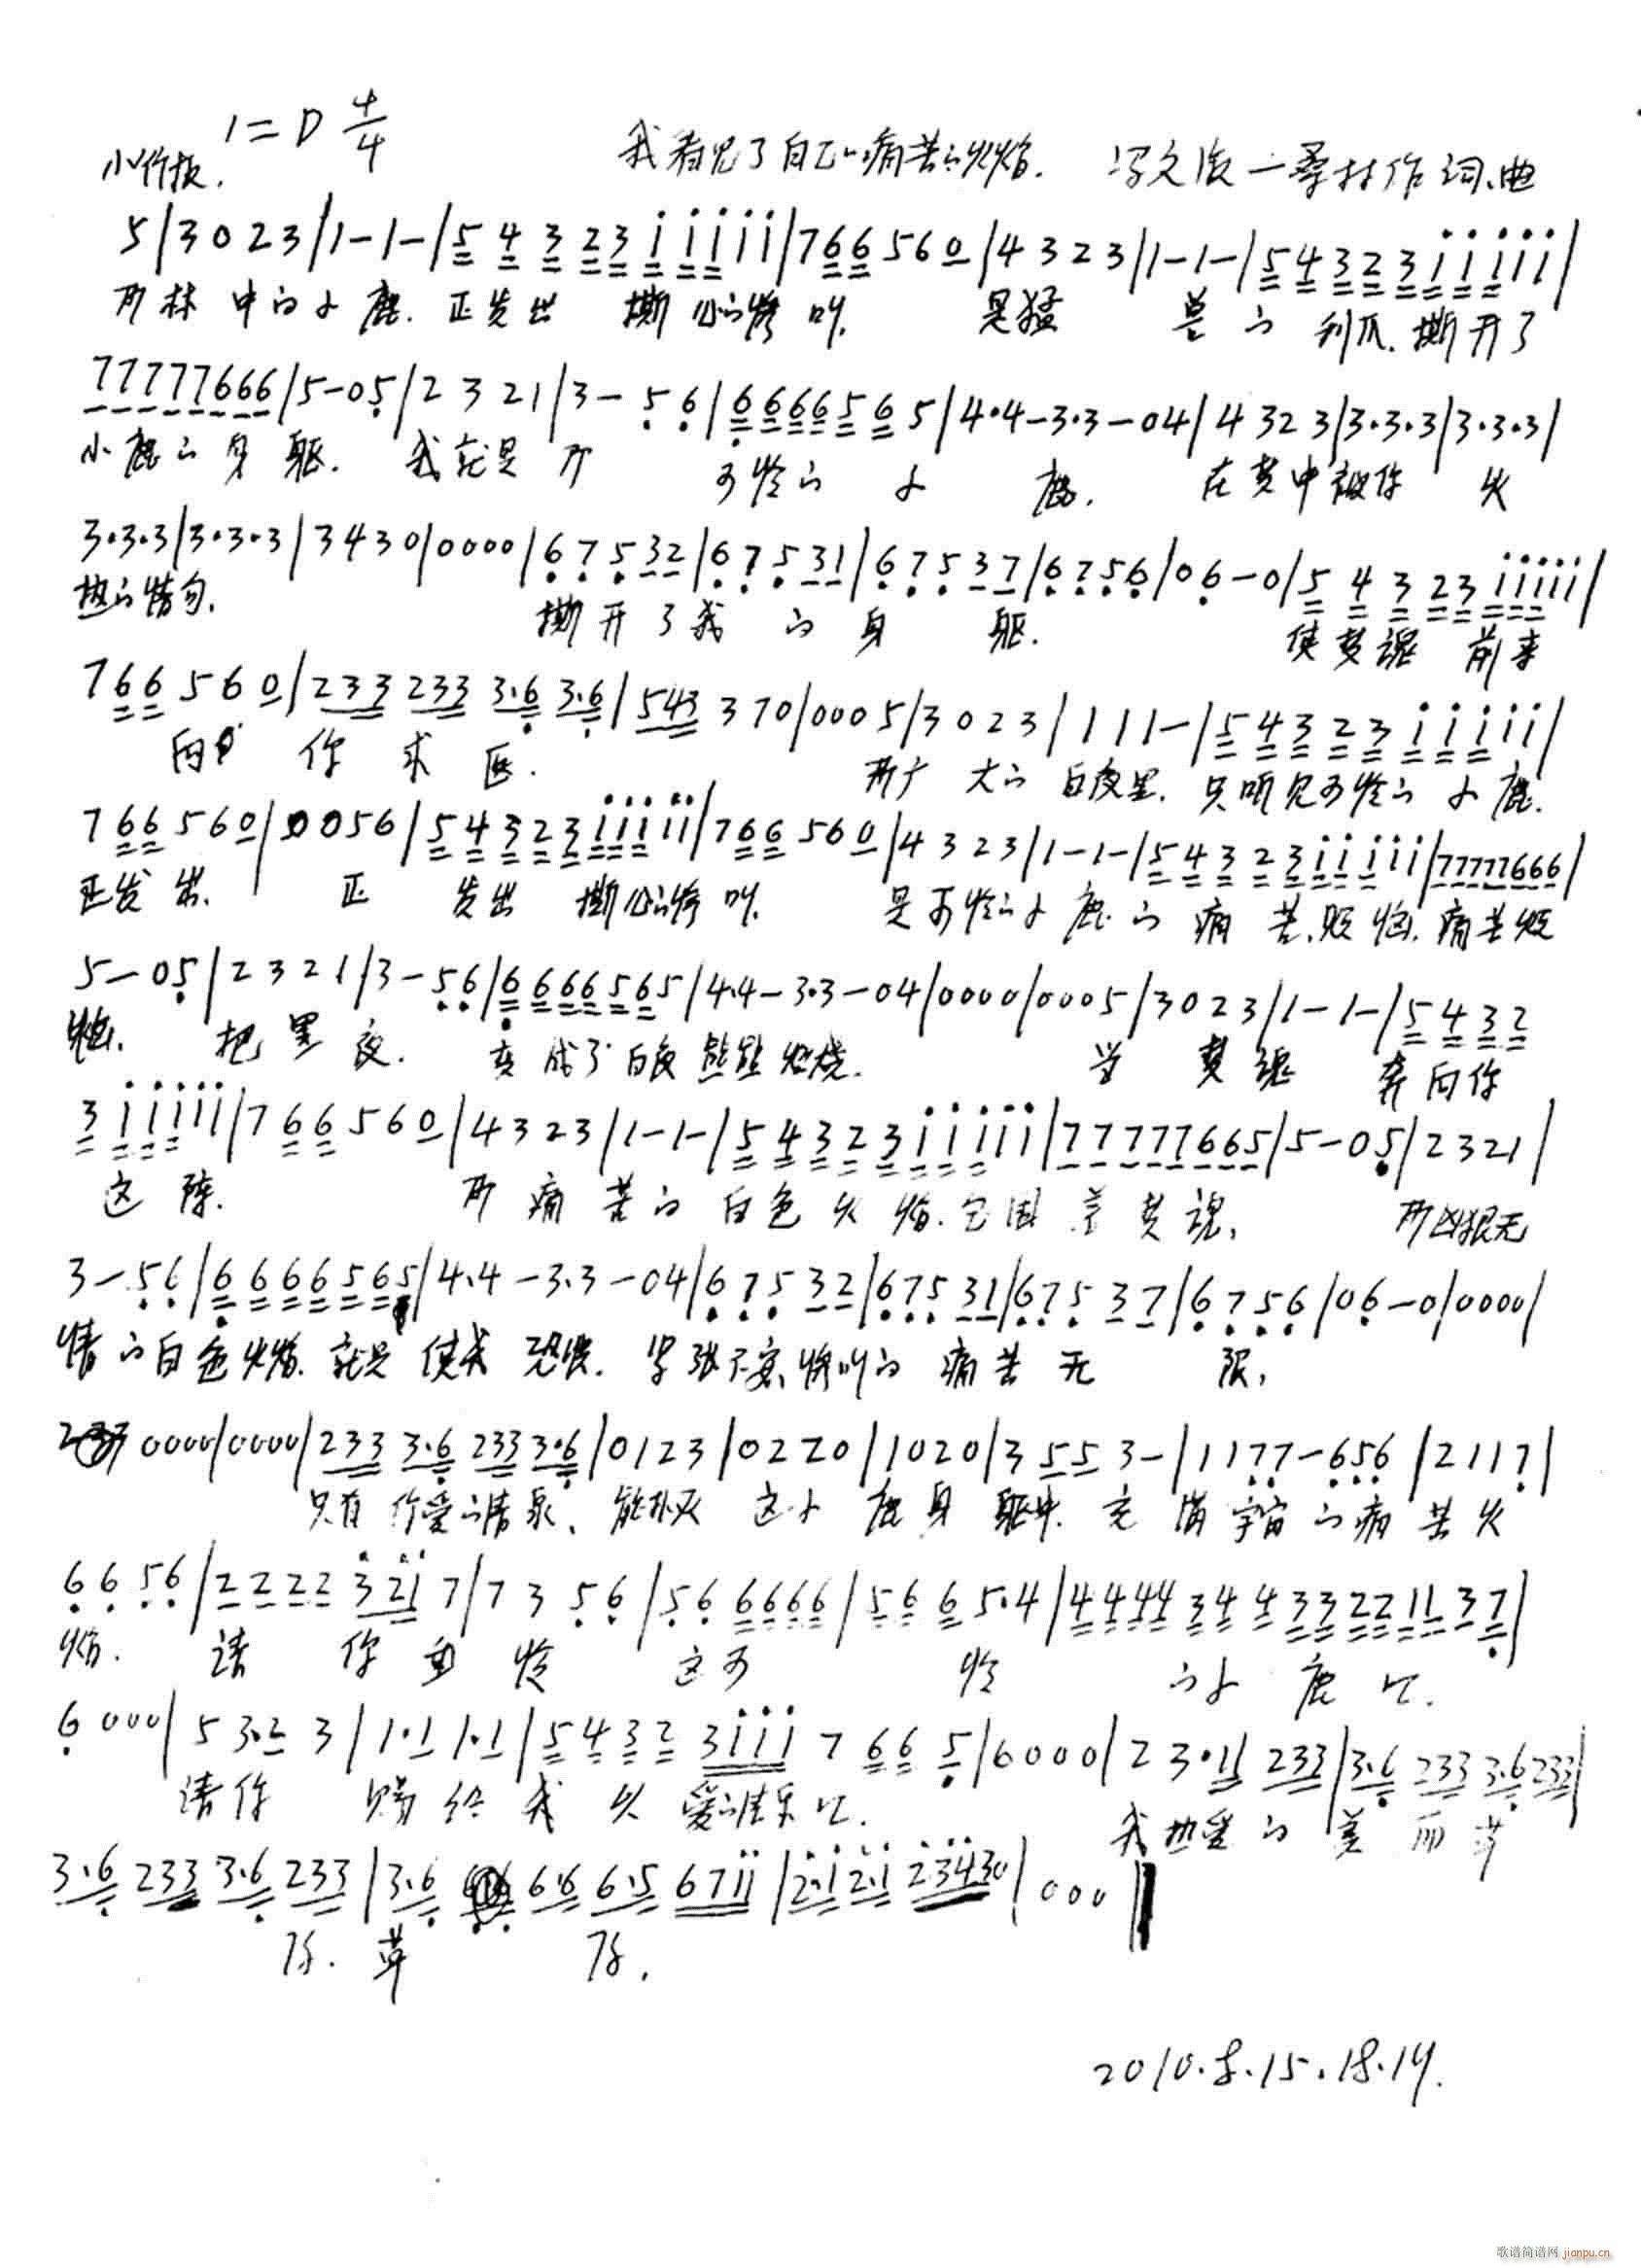 1=D 4/4
小行板. 我看见了自己的痛苦的火焰. 一桑林作词、曲
5|3 0 2 3|1-1-|5 4 3 2 3 i i i i i|7 6 6 5 6 0|4 3 2 3|1-1-|5 4 3 2 3 i i i i i|
那林中的小鹿. 正发出 撕心的惨叫. 是猛 兽的 利爪. 撕开了
7 7 7 7 7 6 6 6|5-0 5|2 3 2 1|3- 5 6|6 6 6 6 5 6 5|4·4-3·3-0 4|4 3 2 3|3·3·3|3·3·3|
小鹿的身躯. 我就是那 可怜的 小 鹿. 在梦中被你 火
3·3·3|3·3·3|3 4 3 0|0 0 0 0|6 7 5 3 2|6 7 5 3 1|6 7 5 3 7|6 7 5 6|0 6-0|5 4 3 2 3 i i i i i|
热的情句. 撕开了我的身 躯. 使梦魂 前来
7 6 6 5 6 0|2 3 3 2 3 3 3·6 3·6|5 4 3 3 7 0|0 0 0 5|3 0 2 3|1 1 1-|5 4 3 2 3 i i i i i|
向 你 求 医. 那广 大的 白夜里. 只听见可怜的小鹿.
7 6 6 5 6 0|0 0 5 6|5 4 3 2 3 i i i i i|7 6 6 5 6 0|4 3 2 3|1-1-|5 4 3 2 3 i i i i i|7 7 7 7 7 6 6 6|
正发出. 正 发出 撕心的惨叫. 是可怜的小鹿的 痛苦.烦恼. 痛苦烦
5-0 5|2 3 2 1|3-5 6|6 6 6 6 5 6 5|4·4-3·3-0 4|0 0 0 0|0 0 0 5|3 0 2 3|1-1-|5 4 3 2
恼. 把黑夜. 变成了白夜熊熊燃烧. 当 梦魂 奔向你
3 i i i i i|7 6 6 5 6 0|4 3 2 3|1-1-|5 4 3 2 3 i i i i i|7 7 7 7 7 6 6 5|5-0 5|2 3 2 1|
这阵. 那痛苦的 白色火焰.包围着梦魂, 那凶狠无
3-5 6|6 6 6 6 5 6 5|4·4-3·3-0 4|6 7 5 3 2|6 7 5 3 1|6 7 5 3 7|6 7 5 6|0 6-0|0 0 0 0|
情的白色火焰. 就是 使我 恐惧. 紧张不安、惨叫的 痛苦无 限,
0 0 0 0|0 0 0 0|2 3 3 3·6 2 3 3 3·6|0 1 2 3|0 2 2 0|1 0 2 0|3 5 5 3-|1 1 7 7-6 5 6|2 1 1 7|
只有 你爱的清泉、能扑灭 这小 鹿身 躯中. 充 满宇宙的痛苦火
6 6 5 6|2 2 2 2 3 2 i 7|7 3 5 6|5 6 6 6 6 6|5 6 6 5·4|4 4 4 4 3 4 4 3 3 2 2 1 1 3 7|
焰. 请 你 可 怜 这可 怜 的小 鹿吧.
6 0 0 0|5 3·2 3|1·1 1·1|5 4 3 2 3 i i i 7 6 6 5|6 0 0 0|2 3·1 1 2 3 3|3·6 2 3 3 3·6 2 3 3|
请你 赐给我 火 爱的清泉吧. 我热爱的美 丽 苹
3·6 2 3 3 3·6 2 3 3|3·6 6·6 6·5 6 7 i i|2·i 2·i 2·3 4 3 0|0 0 0‖
2010.8.15.18.19.
歌谱简谱网 jianpu.cn